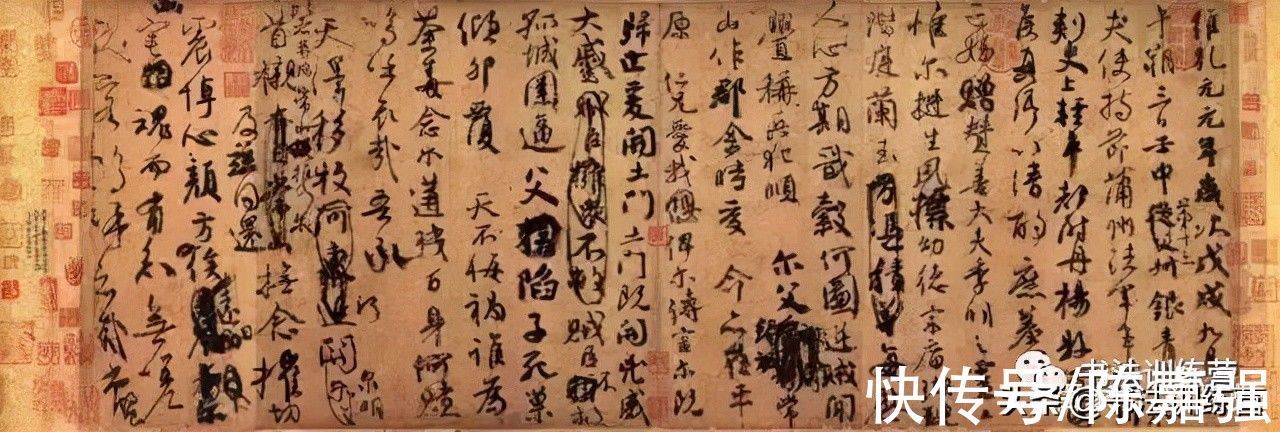 維乾元元年歲次戊戌九月
午朔三日壬申第十三從父銀青
夫使持節蒲州諸軍事
刺史上輕車都尉丹楊縣
侯真卿以清酌庶羞
亡姪贈贊善大夫季明之
惟爾挺生夙標幼德宗廟瑚
階庭蘭玉方憑積善每
人心方期戩穀何圖逆賊間
釁稱兵犯順 爾父竭誠常
山作郡余時受命亦在平
原仁兄愛我俾爾傳言爾既
歸止爰開土門土門既開凶威
大蹙賊臣擁眾不救賊臣不救
孤城圍逼父擒陷子死巢
傾卵覆 天不悔禍誰為
荼毒念爾遘殘百身何贖
嗚乎哀哉吾承
天澤移牧河東近河關爾明
比者再陷常山攜爾
首櫬亦自常山撫念摧切
及茲同還
震悼心顏方俟遠日
魂而有知無嗟
久客嗚呼哀哉尚饗
书法训练营
快传号/陈嘉强